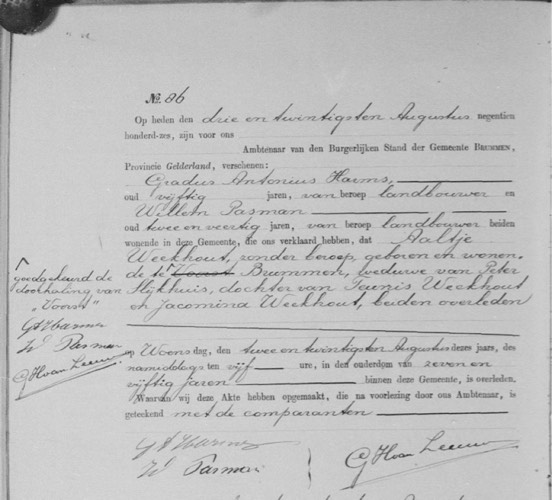 No. 86
Op heden den drie en twintigsten Augustus negentien
honderd-zes, zijn voor ons
Ambtenaar van den Burgerlijken Stand der Gemeente BRUMMEN,
Provincie Gelderland, verschenen:
Gradus Antonius Harms,
oud vijftig jaren, van beroep landbouwer en
Willem Pasman
oud twee en veertig jaren, van beroep landbouwer beiden
wonende in deze Gemeente, die ons verklaard hebben, dat Aaltje
Weekhout, zonder beroep, geboren en wonen-
de te Voorst Brummen, weduwe van Peter
Slijkhuis, dochter van Teunis Weekhout
en Jacomina Weekhout, beiden overleden
Goedgekeurd de
doorhaling van
"Voorst"
GA Harms
W Pasman
GH van Leeuw
op Woensdag, den twee en twintigsten Augustus dezes jaars, des
namiddags ten vijf ure, in den ouderdom van zeven en
vijftig jaren binnen deze Gemeente, is overleden.
Waarvan wij deze Akte hebben opgemaakt, die na voorlezing door ons Ambtenaar, is
geteekend met de comparanten
GA Harms
W Pasman
GH van Leeuw